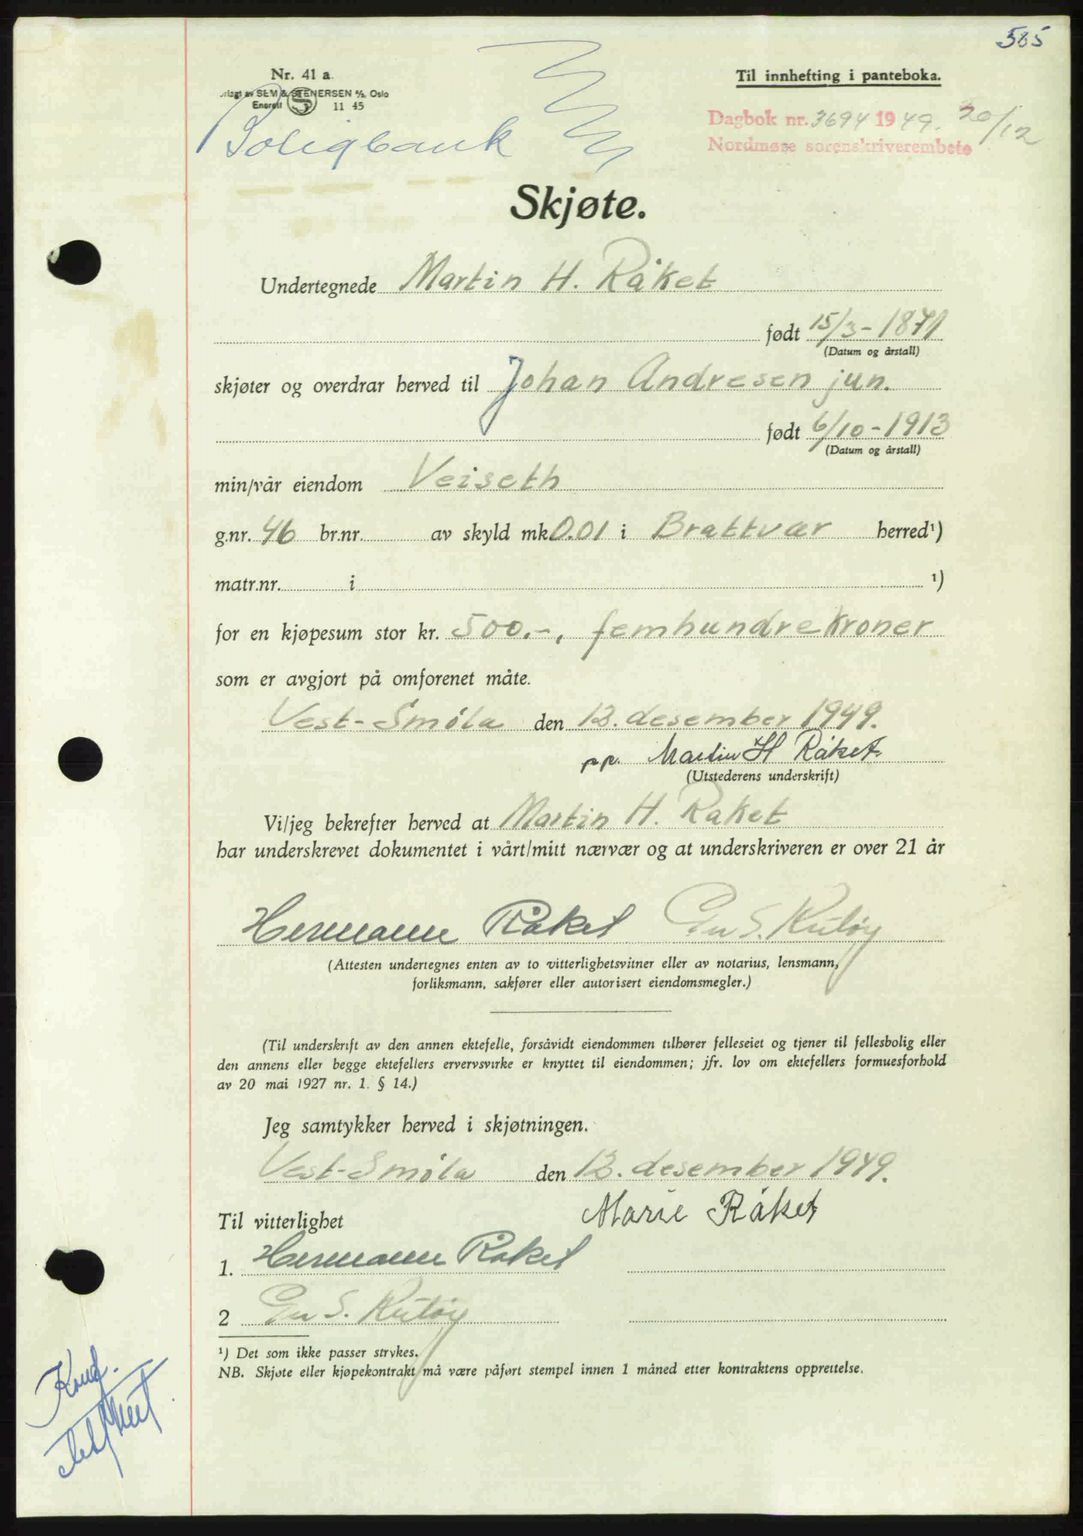 585
Nr. 41 a.
SEM & STENERSEN A/S, Oslo
Enerett S 11 45
Til innhefting i panteboka.
Dagbok nr. 3694 1949. 20/12
Nordmøre sorenskriverembete
Boligbank
Skjøte.
Undertegnede Martin H. Råket
født 15/3-1871
(Datum og årstall)
skjøter og overdrar herved til Johan Andresen jun.
født 6/10-1913
(Datum og årstall)
min/vår eiendom Veiseth
g.nr. 46 br.nr. av skyld mk 0.01 i Brattvær herred¹)
matr.nr. i ¹)
for en kjøpesum stor kr. 500.-, femhundrekroner
som er avgjort på omforenet måte.
Vest-Smøla den 13. desember 1949.
p.p. Martin H Råket.
(Utstederens underskrift)
Vi/jeg bekrefter herved at Martin H. Raket
har underskrevet dokumentet i vårt/mitt nærvær og at underskriveren er over 21 år
Hermann Råket S.
(Attesten undertegnes enten av to vitterlighetsvitner eller av notarius, lensmann,
forliksmann, sakfører eller autorisert eiendomsmegler.)
(Til underskrift av den annen ektefelle, forsåvidt eiendommen tilhører felleseiet og tjener til fellesbolig eller
den annens eller begge ektefellers ervervsvirke er knyttet til eiendommen; jfr. lov om ektefellers formuesforhold
av 20 mai 1927 nr. 1. § 14.)
Jeg samtykker herved i skjøtningen.
Vest-Smøla den 13. desember 1949.
Marie Råket
Til vitterlighet
1. Hermann Råket
2 S.
¹) Det som ikke passer strykes.
NB. Skjøte eller kjøpekontrakt må være påført stempel innen 1 måned etter kontraktens opprettelse.